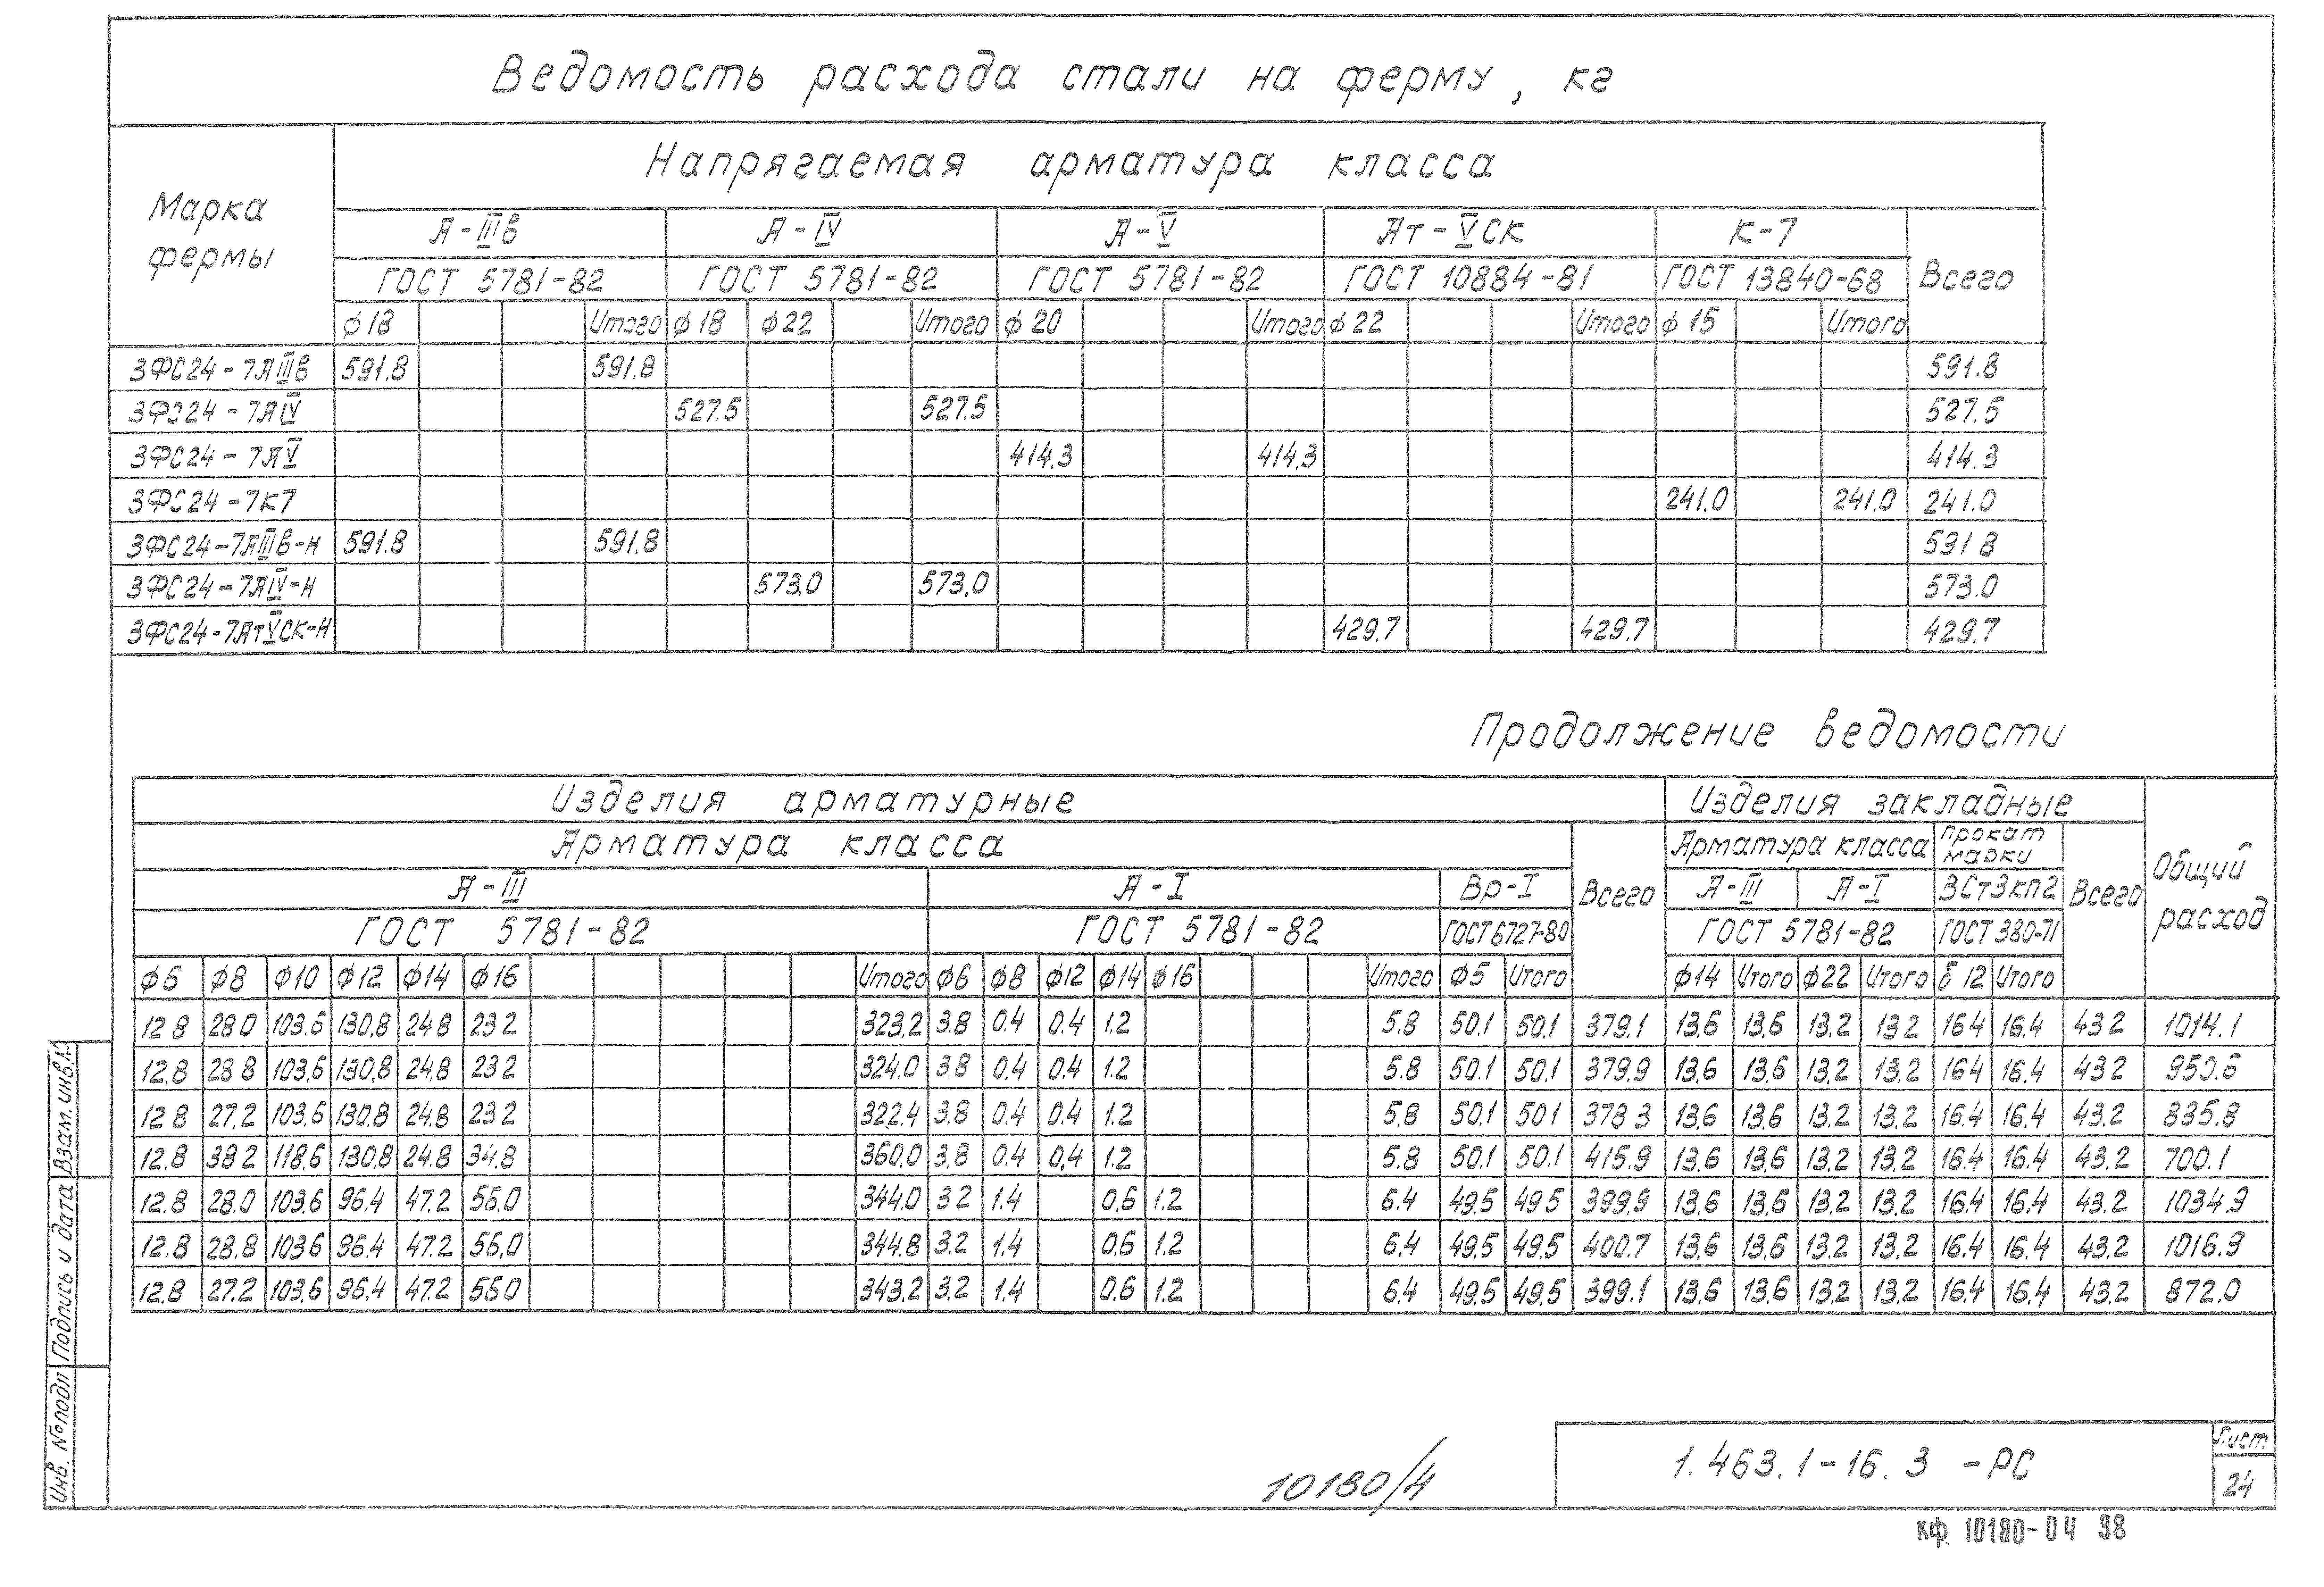 Ведомость расхода стали на ферму, кг
Марка фермы
Напрягаемая арматура класса
А-IIIв А-IV А-V Ат-VСК К-7
ГОСТ 5781-82 ГОСТ 5781-82 ГОСТ 5781-82 ГОСТ 10884-81 ГОСТ 13840-68 Всего
ф18 Итого ф18 ф22 Итого ф20 Итого ф22 Итого ф15 Итого
3ФС24-7АIIIв 591.8 591.8 591.8
3ФС24-7АIV 527.5 527.5 527.5
3ФС24-7АV 414.3 414.3 414.3
3ФС24-7К7 241.0 241.0 241.0
3ФС24-7АIIIв-Н 591.8 591.8 591 8
3ФС24-7АIV-Н 573.0 573.0 573.0
3ФС24-7АтVСК-Н 429.7 429.7 429.7
Продолжение ведомости
Изделия арматурные Изделия закладные Общий расход
Арматура класса Всего Арматура класса Прокат марки Всего
А-III А-I Вр-I А-III А-I ВСт3кп2
ГОСТ 5781-82 ГОСТ 5781-82 ГОСТ 6727-80 ГОСТ 5781-82 ГОСТ 380-71
ф6 ф8 ф10 ф12 ф14 ф16 Итого ф6 ф8 ф12 ф14 ф16 Итого ф5 Итого ф14 Итого ф22 Итого δ 12 Итого
12 8 28 0 103.6 130.8 24 8 23 2 323.2 3.8 0.4 0.4 1.2 5.8 50.1 50.1 379.1 13.6 13.6 13.2 13 2 16 4 16.4 43 2 1014.1
12.8 28 8 103.6 130.8 24.8 23 2 324.0 3.8 0.4 0.4 1.2 5.8 50.1 50.1 379.9 13.6 13.6 13.2 13.2 16 4 16.4 43 2 950.6
12 8 27.2 103.6 130.8 24.8 23 2 322.4 3.8 0.4 0.4 1.2 5.8 50.1 50 1 378 3 13.6 13.6 13.2 13.2 16.4 16.4 43.2 835.8
12.8 38 2 118.6 130.8 24.8 34.8 360.0 3.8 0.4 0.4 1.2 5.8 50.1 50.1 415.9 13.6 13.6 13.2 13.2 16.4 16.4 43.2 700.1
12.8 28.0 103.6 96.4 47.2 56.0 344.0 3 2 1.4 0.6 1.2 6.4 49.5 49 5 399.9 13.6 13.6 13.2 13.2 16.4 16.4 43.2 1034.9
12.8 28.8 103 6 96.4 47.2 56.0 344.8 3.2 1.4 0.6 1.2 6.4 49.5 49.5 400.7 13.6 13.6 13.2 13.2 16.4 16.4 43.2 1016.9
12.8 27.2 103.6 96.4 47.2 56 0 343.2 3.2 1.4 0.6 1.2 6.4 49.5 49.5 399.1 13.6 13.6 13.2 13.2 16.4 16.4 43.2 872.0
Взам. инв. №
Подпись и дата
Инв. № подл
10180/4
1.463.1-16.3 -РС
Лист
24
кф. 10180-04 98